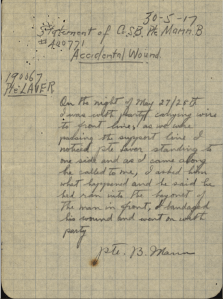 30-5-17
Statement of C.S.B. Pte Mann. B
#490771
Accidental Wound.
190067
Pte. LAVER
On the night of May 27/28th
I was with party carrying wire
to front line, as we were
passing the support line I
noticed Pte Laver standing to
one side and as I came along
he called to me, I asked him
what happened and he said he
had run into the bayonet of
the man in front, I bandaged
his wound and went on with
party
Pte. B. Mann